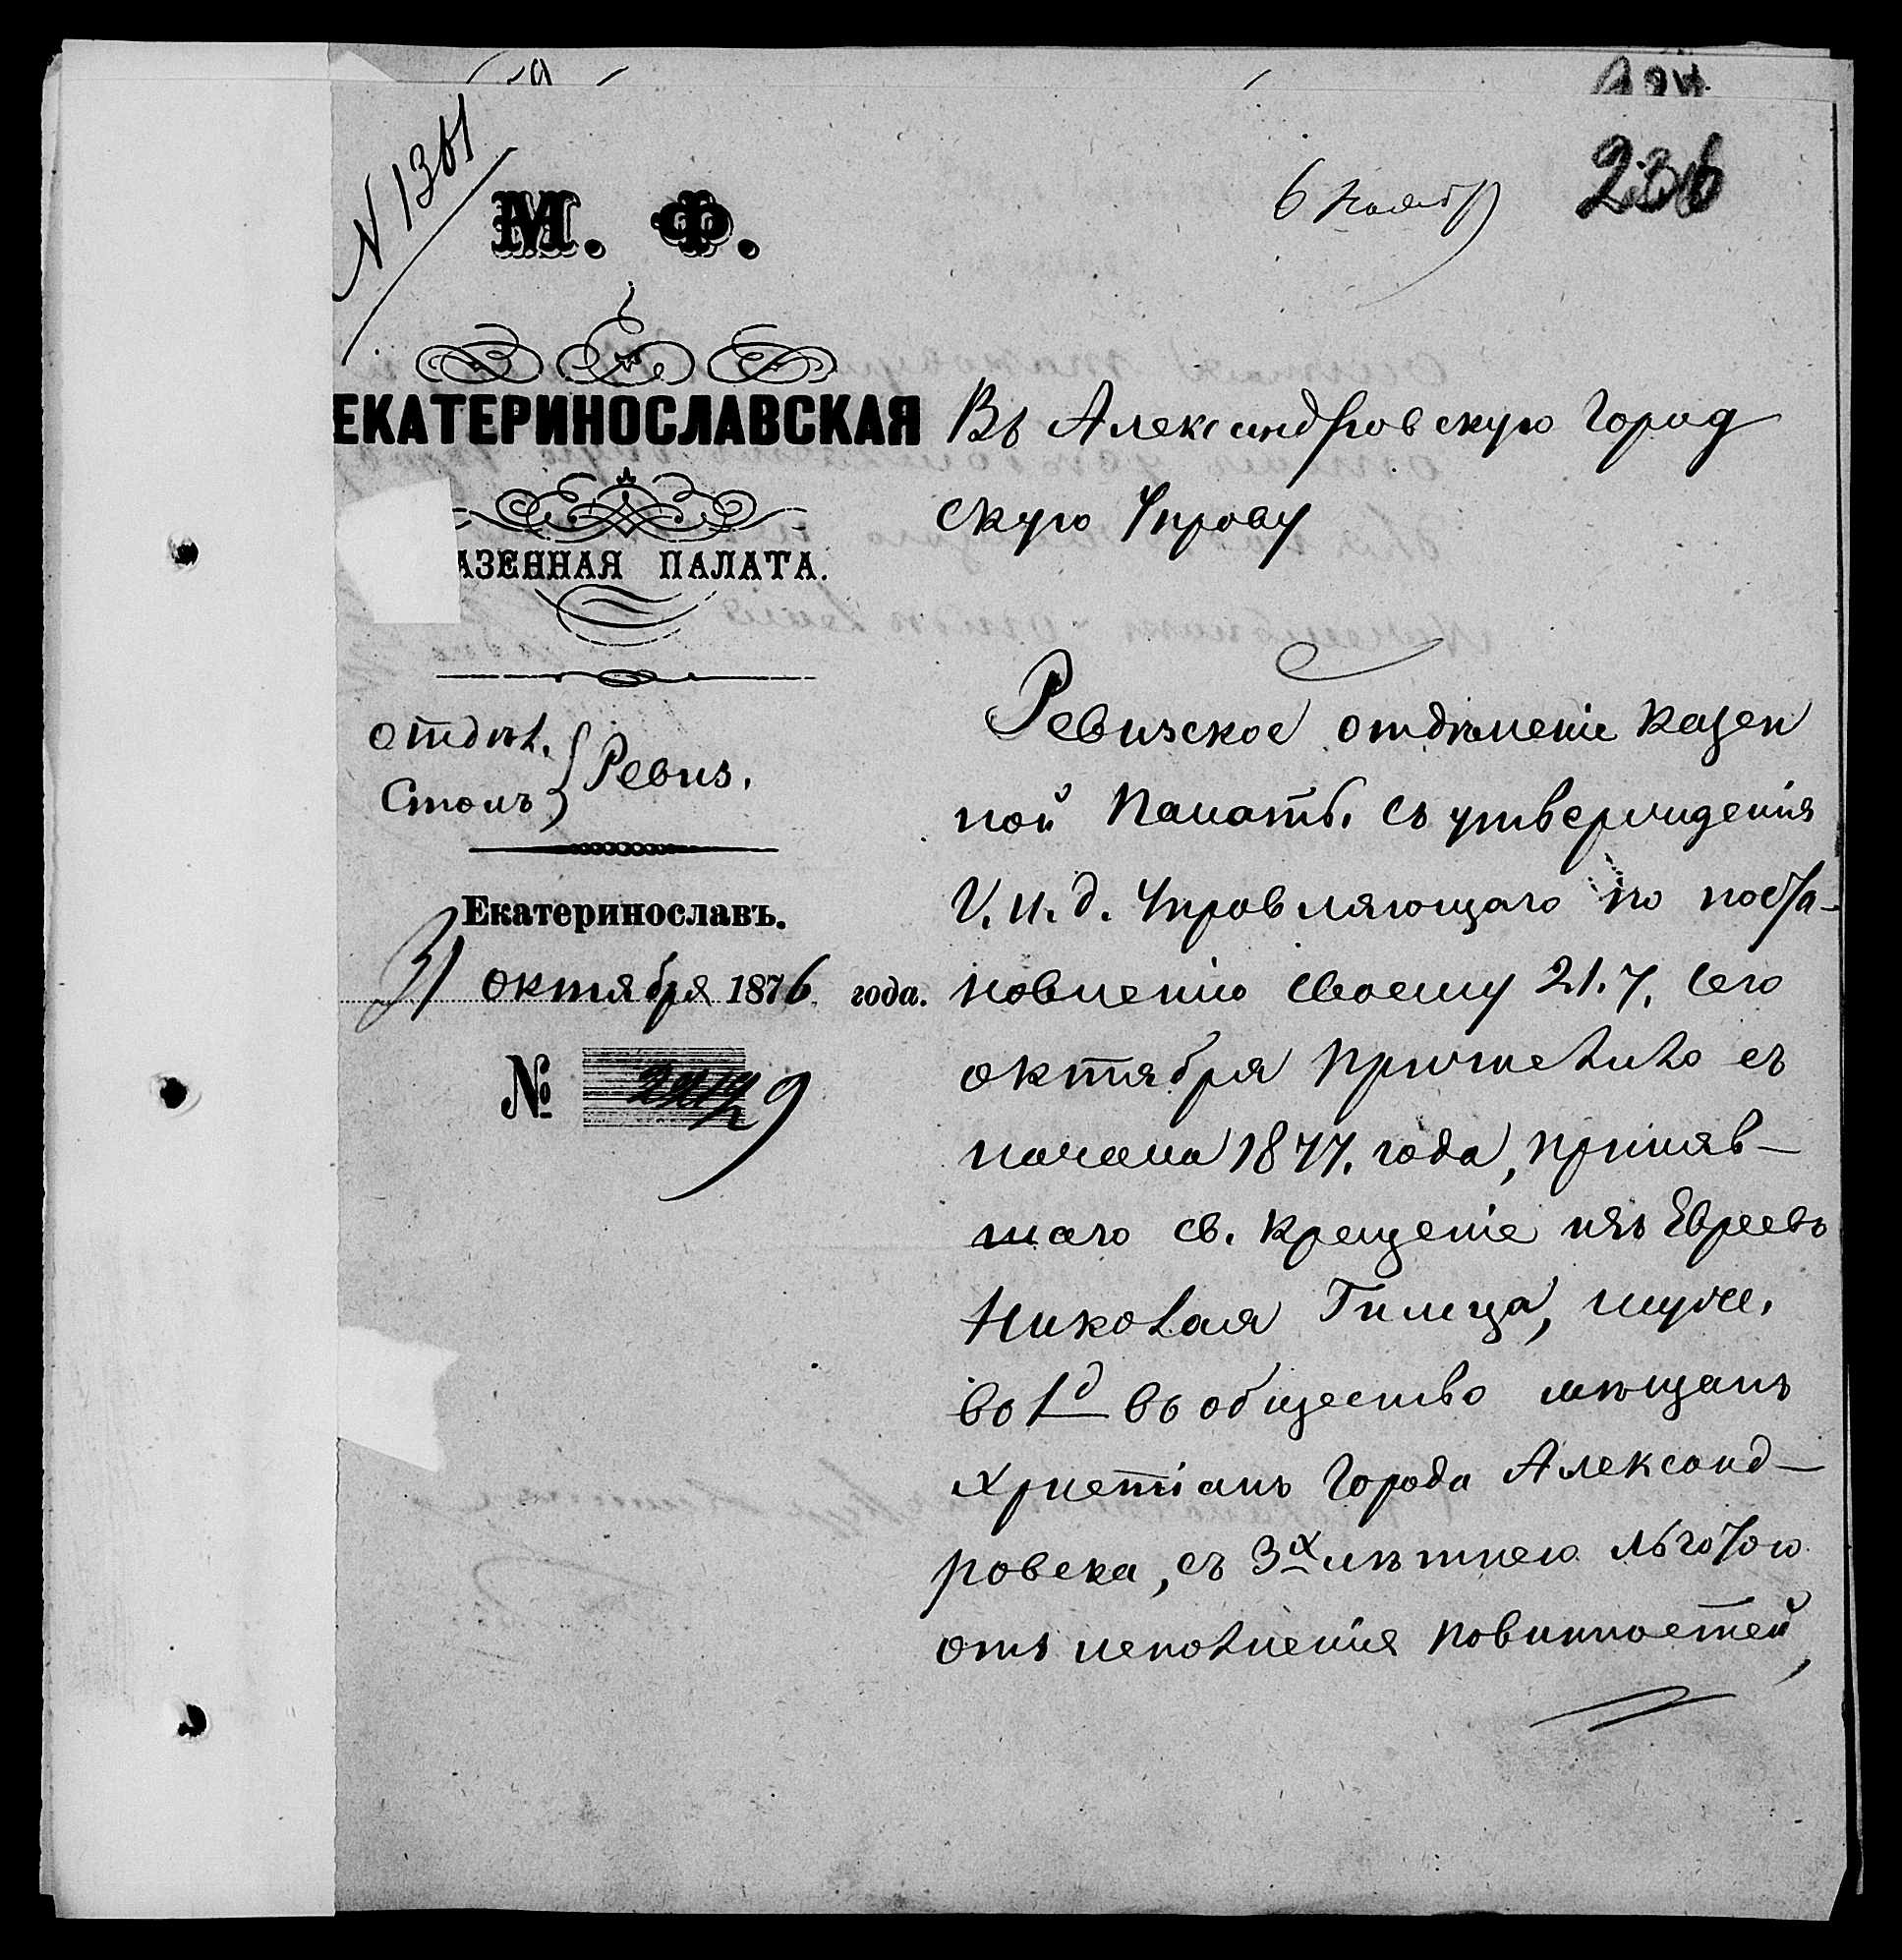 N 1361
236
6 Ноябр
М. Ф.
ЕКАТЕРИНОСЛАВСКАЯ
АЗЕННАЯ ПАЛАТА.
Отдѣл.
Столъ
Ревиз.
Екатеринославъ.
31 октября 1876 года.
№
Въ Александровскую Город
скую Управу
Ревизское отдѣленіе Казен
ной Палаты, съ утвержденія
Г. И. д. Управляющаго по поста-
новленію своему 21.7. сего
октября причислило съ
начала 1877. года, приняв-
шаго св. крещеніе изъ Евреевъ
Николая Гилица, муже.
во 1д въ общество мѣщанъ
христіанъ Города Александ-
ровска, съ 3х лѣтнею льготою
отъ исполненія повинностей,